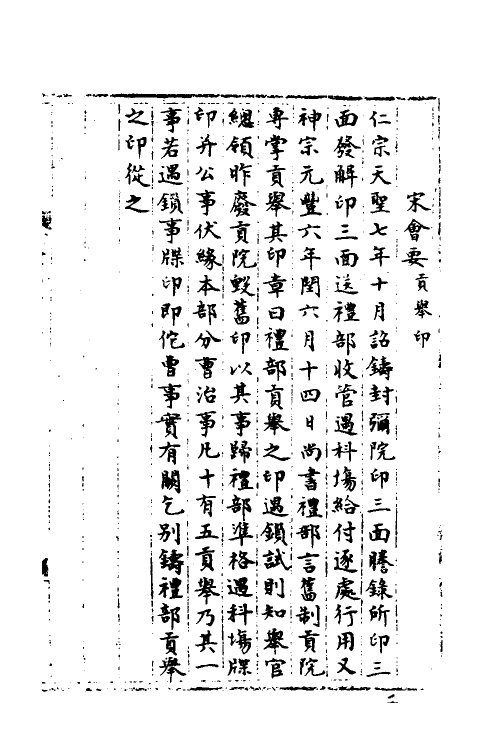 宋會要貢舉印
仁宗天聖七年十月詔鑄封彌院印三面謄錄所印三
面發解印三面送禮部收管遇科塲給付逐處行用又
神宗元豐六年閏六月十四日尚書禮部言舊制貢院
專掌貢舉其印章曰禮部貢舉之印遇鎖試則知舉官
總領昨廢貢院毀舊印以其事歸禮部準格遇科塲牒
印并公事伏緣本部分曹治事凡十有五貢舉乃其一
事若遇鎖事牒印即佗曹事實有闕乞別鑄禮部貢舉
之印從之